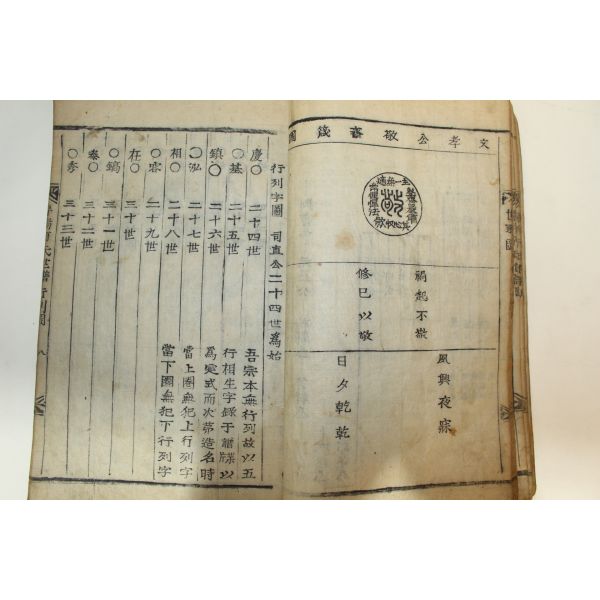 文孝公敬齋箴圖
禍起不敬
修己以敬
夙興夜寐
日夕乾乾
行列字圖 司直公二十四世爲始
慶〇 二十四世
〇基 二十五世
鎮〇 二十六世
〇泓 二十七世
相〇 二十八世
〇容 二十九世
在〇 三十世
〇鎬 三十一世
泰〇 三十二世
〇秀 三十三世
吾宗本無行列故以五
行相生字錄于譜牒以
爲定式而次第造名時
當上圈無犯上行列字
當下圈無犯下行列字
氏世譜 行列圖 八